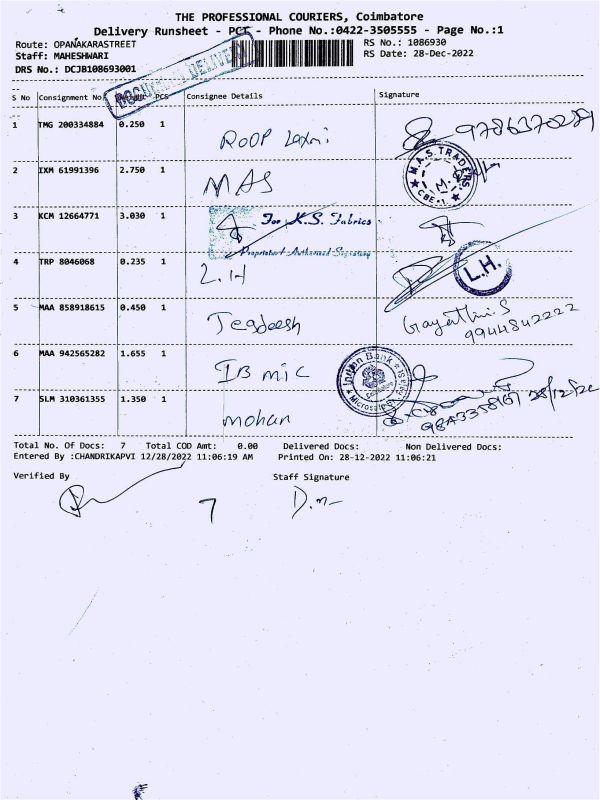 THE PROFESSIONAL COURIERS, Coimbatore
Delivery Runsheet - PCT - Phone No.:0422-3505555 - Page No.:1
Route: OPANAKARASTREET RS No.: 1086930
Staff: MAHESHWARI RS Date: 28-Dec-2022
DRS No.: DCJB108693001
DOCUMENT DELIVERED
S No Consignment No PCS Consignee Details Signature
1 TMG 200334884 0.250 1 ROOP Laxmi 9786370289
2 IXM 61991396 2.750 1 MAS M.A.S. TRADERS CBE-1
3 KCM 12664771 3.030 1 For K.S. Fabrics
Proprietor/ Authorised Signatory
4 TRP 8046068 0.235 1 L.H L.H.
5 MAA 858918615 0.450 1 Jegdeesh Gayathri.S
9944842222
6 MAA 942565282 1.655 1 IB mic Indian Bank
7 SLM 310361355 1.350 1 mohan 28/12/22
Total No. Of Docs: 7 Total COD Amt: 0.00 Delivered Docs: Non Delivered Docs:
Entered By :CHANDRIKAPVI 12/28/2022 11:06:19 AM Printed On: 28-12-2022 11:06:21
Verified By Staff Signature
7 D.m